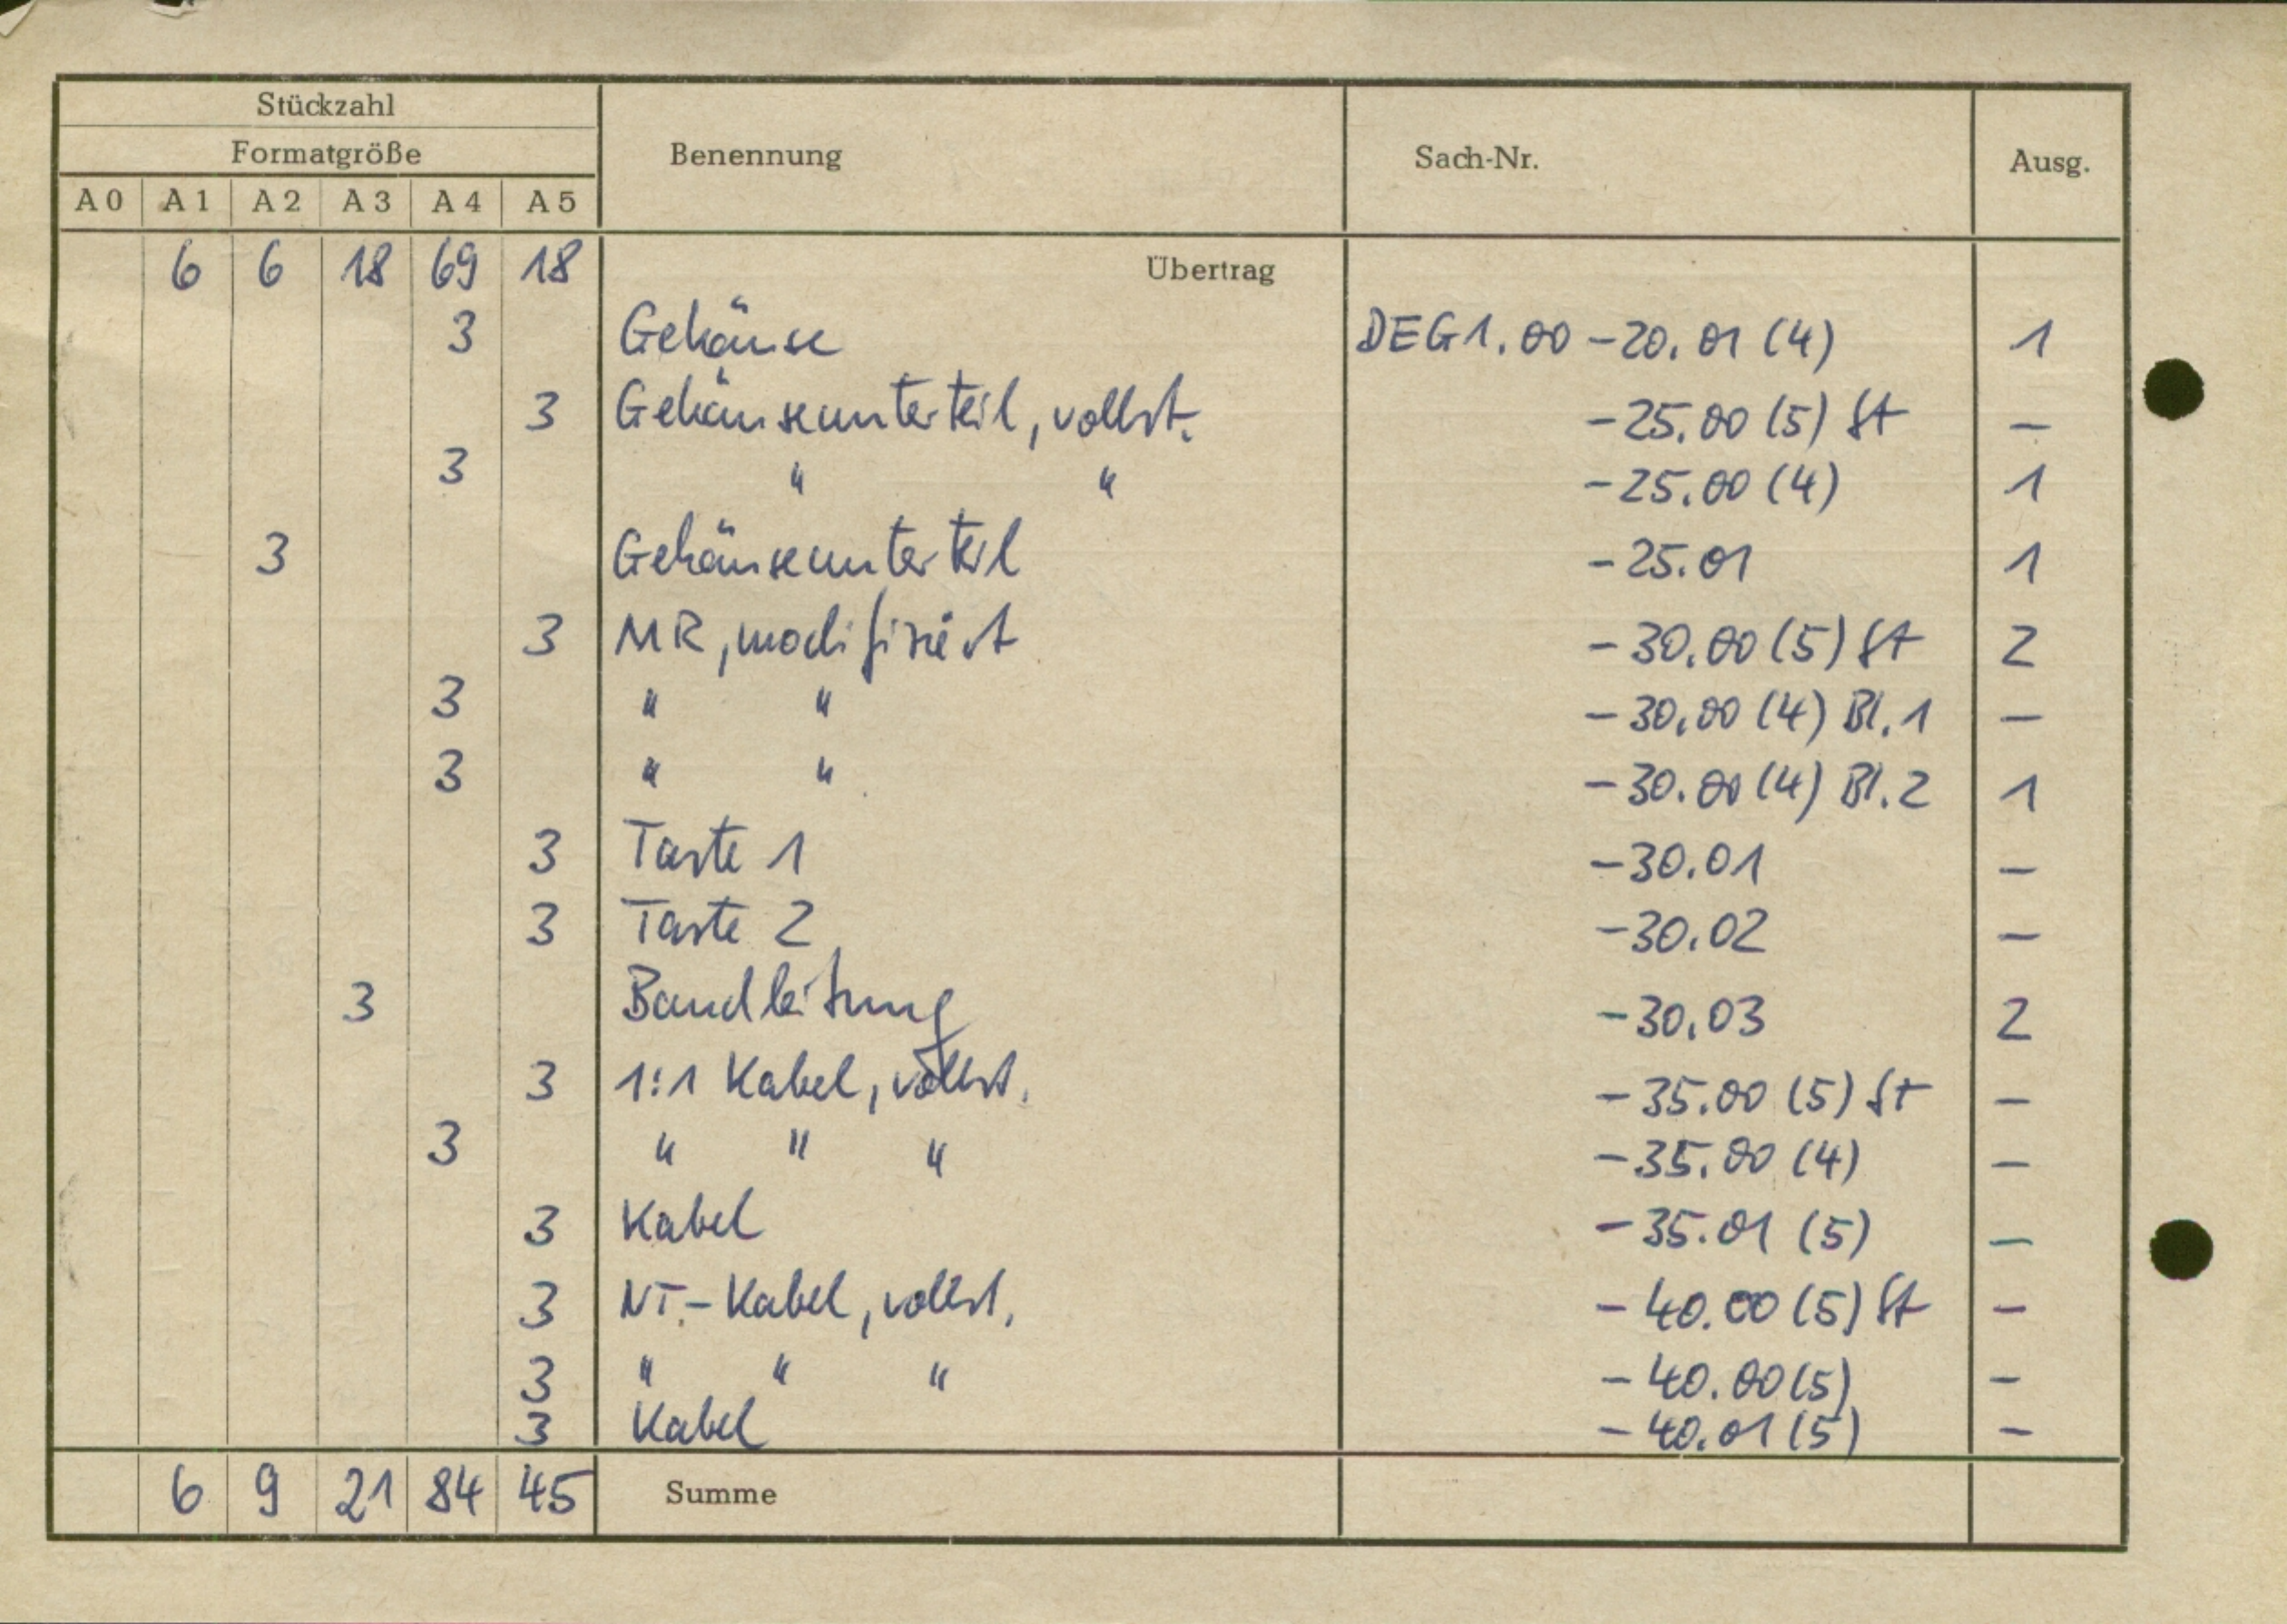 Stückzahl
Formatgröße Benennung Sach-Nr. Ausg.
A 0 A 1 A 2 A 3 A 4 A 5
6 6 18 69 18 Übertrag
3 Gehäuse DEG1.00 -20.01 (4) 1
3 Gehäuseunterteil, vollst. -25.00 (5) St –
3 " " -25.00 (4) 1
3 Gehäuseunterteil -25.01 1
3 MR, modifiziert -30.00 (5) St 2
3 " " -30.00 (4) Bl. 1 –
3 " " -30.00 (4) Bl. 2 1
3 Taste 1 -30.01 –
3 Taste 2 -30.02 –
3 Bandleitung -30.03 2
3 1:1 Kabel, vollst. -35.00 (5) St –
3 " " " -35.00 (4) –
3 Kabel -35.01 (5) –
3 NT.-Kabel, vollst. -40.00 (5) St –
3 " " " -40.00 (5) –
3 Kabel -40.01 (5) –
6 9 21 84 45 Summe